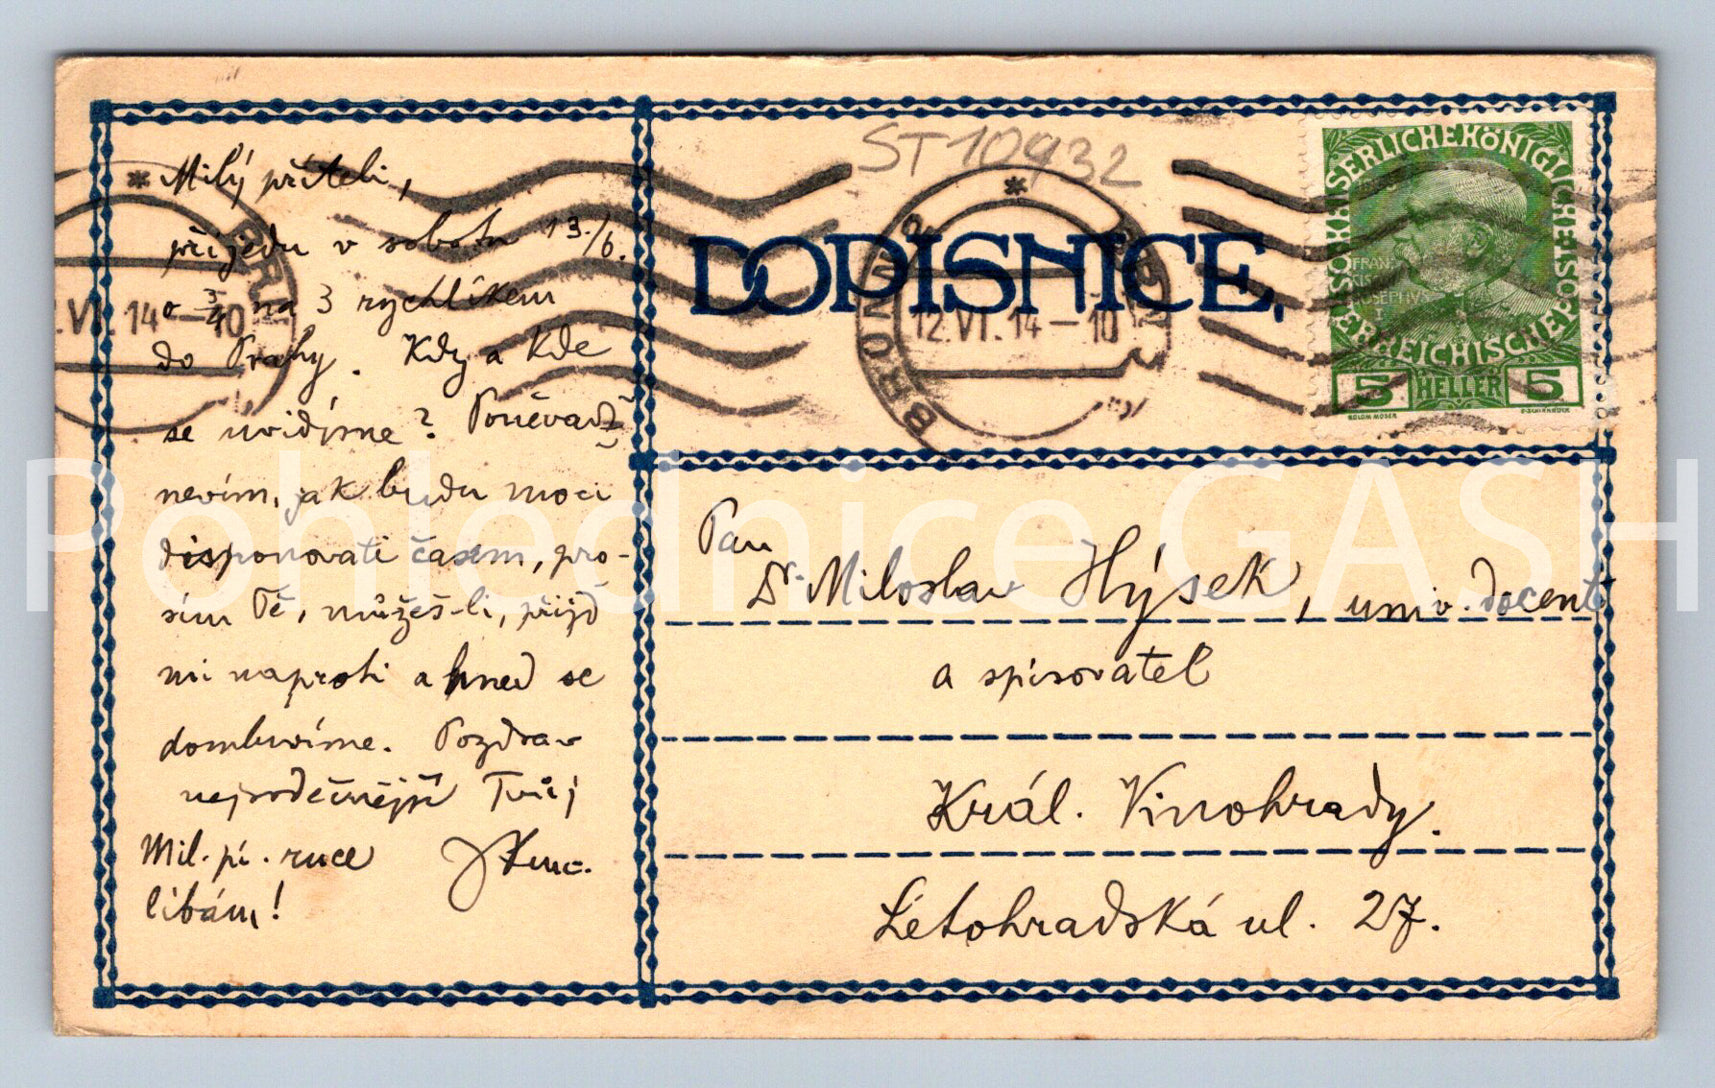 Milý příteli,
přijedu v sobotu 13./6.
o 3/4 na 3 rychlíkem
do Prahy. Kdy a kde
se uvidíme? Poněvadž
nevím, jak budu moci
disponovati časem, pro-
sím Tě, můžeš-li, přijď
mi naproti a hned se
domluvíme. Pozdrav
nejsrdečnější Tvůj
Mil. pí. ruce
líbám!
ST10932
DOPISNICE.
BRÜNN
BRNO
12.VI.14-10
KAISERLICHE KÖNIGLICHE
ÖSTERREICHISCHE POST
FRAN
IOSEPHVS
I
5 HELLER 5
KOLOM MOSER
F. SCHIRNBÖCK
Pan
Dr. Miloslav Hýsek, univ. docent
a spisovatel
Král. Vinohrady.
Letohradská ul. 27.
Pohlednice GASH